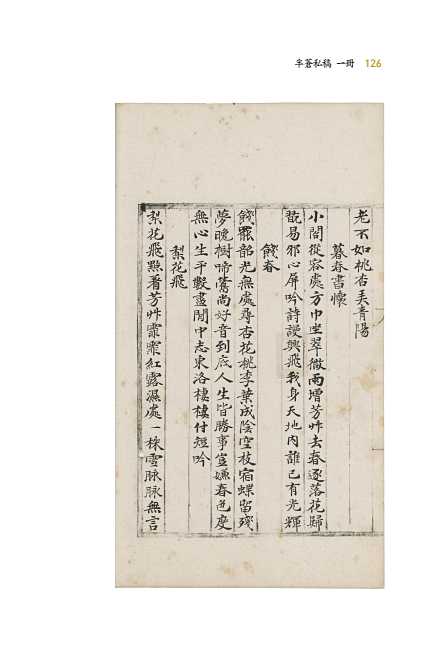 半蒼私稿 一冊 126
老不如桃杏美青陽
暮春書懷
小閣從容處方巾坐翠微雨增芳艸去春逐落花歸
翫易邪心屏吟詩謾興飛我身天地內誰已有光輝
餞春
餞罷韶光無處尋杏花桃李葉成陰空枝宿蝶留殘
夢晚樹啼鶯尚好音到底人生皆勝事豈嫌春色度
無心生平數盡閒中志東洛棲棲付短吟
梨花飛
梨花飛點看芳艸霏霏紅露濕處一株雪脉脉無言